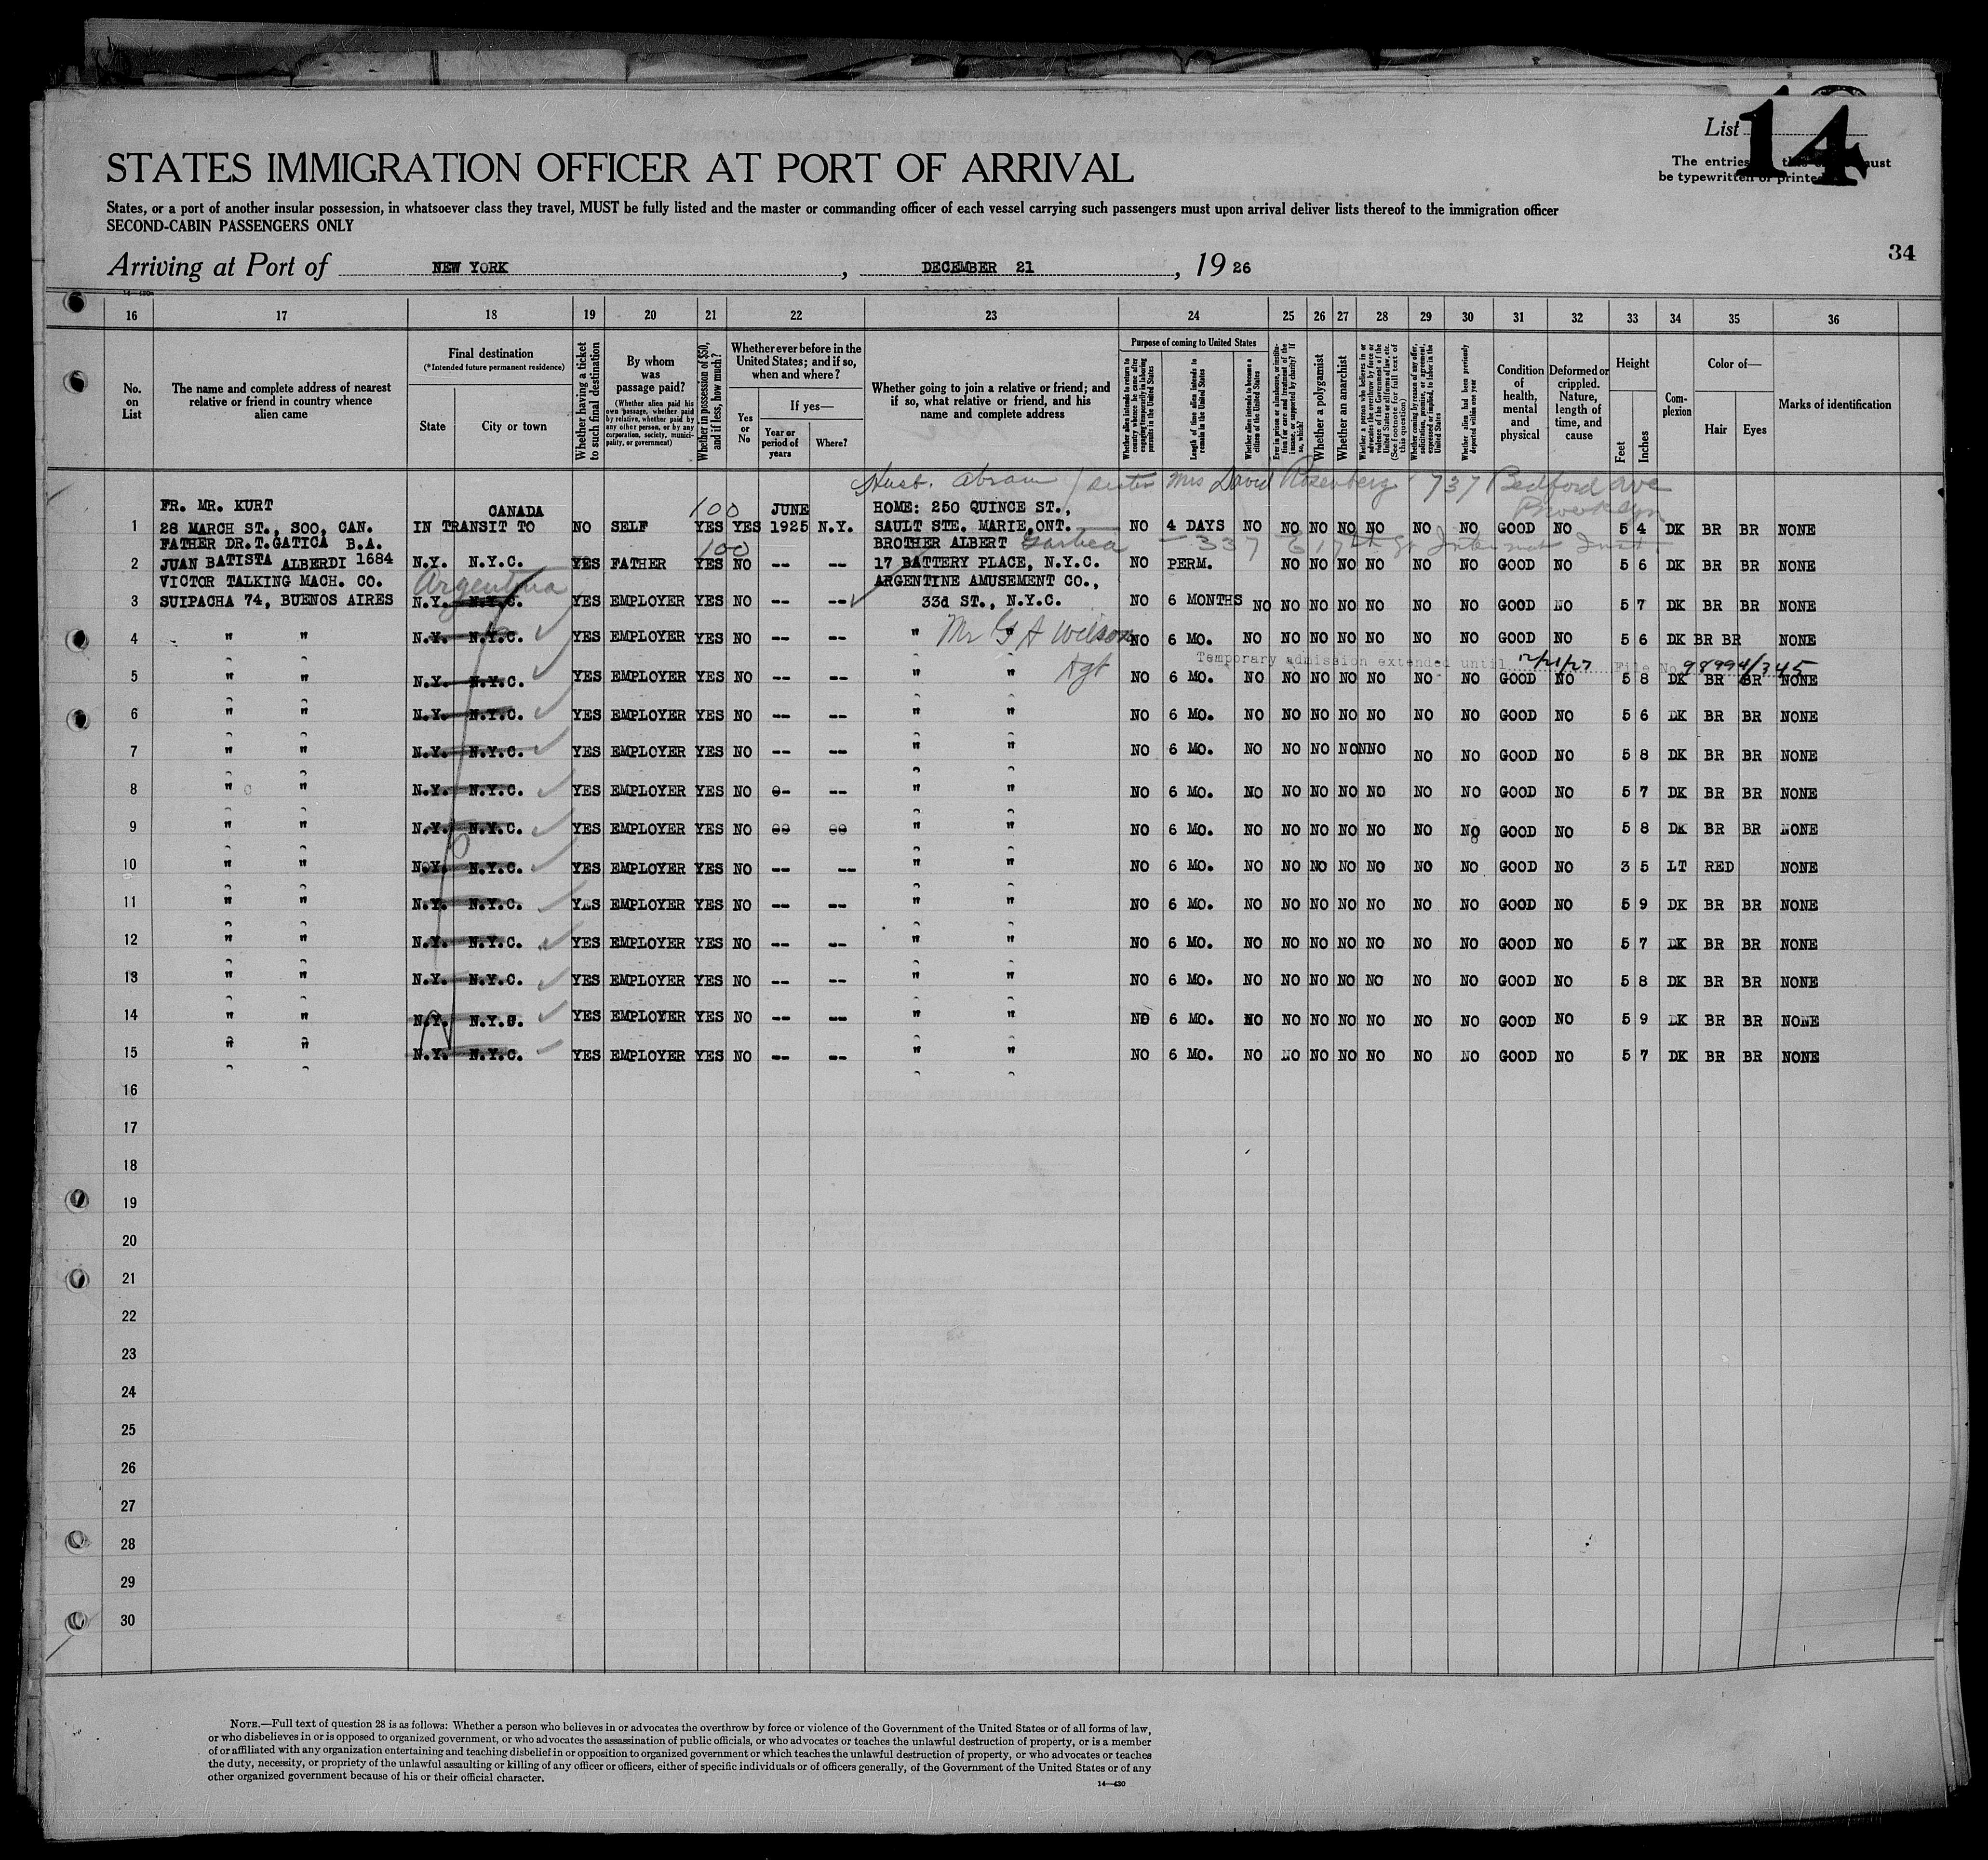 List 14
STATES IMMIGRATION OFFICER AT PORT OF ARRIVAL
The entries must
be typewritten or printed
States, or a port of another insular possession, in whatsoever class they travel, MUST be fully listed and the master or commanding officer of each vessel carrying such passengers must upon arrival deliver lists thereof to the immigration officer
SECOND-CABIN PASSENGERS ONLY
34
Arriving at Port of NEW YORK, DECEMBER 21, 1926
16 17 18 19 20 21 22 23 24 25 26 27 28 29 30 31 32 33 34 35 36
No. on List
The name and complete address of nearest relative or friend in country whence alien came
Final destination
(*Intended future permanent residence)
State
City or town
Whether having a ticket to such final destination
By whom was passage paid?
(Whether alien paid his own passage, whether paid by relative, whether paid by any other person, or by any corporation, society, municipality, or government)
Whether in possession of $50, and if less, how much?
Whether ever before in the United States; and if so, when and where?
Yes or No
If yes—
Year or period of years
Where?
Whether going to join a relative or friend; and if so, what relative or friend, and his name and complete address
Purpose of coming to United States
Whether alien intends to return to country whence he came after engaging temporarily in laboring pursuits in the United States
Length of time alien intends to remain in the United States
Whether alien intends to become a citizen of the United States
Ever in prison or almshouse, or institution for care and treatment of the insane, or supported by charity? If so, which?
Whether a polygamist
Whether an anarchist
Whether a person who believes in or advocates the overthrow by force or violence of the Government of the United States or all forms of law, etc. (See footnote for full text of this question)
Whether coming by reason of any offer, solicitation, promise, or agreement, expressed or implied, to labor in the United States
Whether alien had been previously deported within one year
Condition of health, mental and physical
Deformed or crippled. Nature, length of time, and cause
Height
Feet
Inches
Complexion
Color of—
Hair
Eyes
Marks of identification
Husb. Abram / sister Mrs David Rosenberg 737 Bedford ave
Brooklyn
FR. MR. KURT CANADA 100 JUNE HOME: 250 QUINCE ST.,
1 28 MARCH ST., SOO, CAN. IN TRANSIT TO NO SELF YES YES 1925 N.Y. SAULT STE. MARIE,ONT. NO 4 DAYS NO NO NO NO NO NO NO GOOD NO 5 4 DK BR BR NONE
FATHER DR.T.GATICA B.A. 100 BROTHER ALBERT 337
2 JUAN BATISTA ALBERDI 1684 N.Y. N.Y.C. YES FATHER YES NO -- -- 17 BATTERY PLACE, N.Y.C. NO PERM. NO NO NO NO NO NO GOOD NO 5 6 DK BR BR NONE
VICTOR TALKING MACH. CO. Argentina ARGENTINE AMUSEMENT CO.,
3 SUIPACHA 74, BUENOS AIRES N.Y. N.Y.C. YES EMPLOYER YES NO -- -- 33d ST., N.Y.C. NO 6 MONTHS NO NO NO NO NO NO NO GOOD NO 5 7 DK BR BR NONE
4 " " N.Y. N.Y.C. YES EMPLOYER YES NO -- -- " " Mr G A Wilson NO 6 MO. NO NO NO NO NO NO NO GOOD NO 5 6 DK BR BR NONE
Temporary admission extended until 12/21/27 File No. 98994/345
5 " " N.Y. N.Y.C. YES EMPLOYER YES NO -- -- " " Agt NO 6 MO. NO NO NO NO NO NO NO GOOD NO 5 8 DK BR BR NONE
6 " " N.Y. N.Y.C. YES EMPLOYER YES NO -- -- " " NO 6 MO. NO NO NO NO NO NO NO GOOD NO 5 6 DK BR BR NONE
7 " " N.Y. N.Y.C. YES EMPLOYER YES NO -- -- " " NO 6 MO. NO NO NO NONNO NO NO GOOD NO 5 8 DK BR BR NONE
8 " " N.Y. N.Y.C. YES EMPLOYER YES NO -- -- " " NO 6 MO. NO NO NO NO NO NO NO GOOD NO 5 7 DK BR BR NONE
9 " " N.Y. N.Y.C. YES EMPLOYER YES NO -- -- " " NO 6 MO. NO NO NO NO NO NO NO GOOD NO 5 8 DK BR BR NONE
10 " " N.Y. N.Y.C. YES EMPLOYER YES NO -- -- " " NO 6 MO. NO NO NO NO NO NO NO GOOD NO 3 5 LT RED NONE
11 " " N.Y. N.Y.C. YES EMPLOYER YES NO -- -- " " NO 6 MO. NO NO NO NO NO NO NO GOOD NO 5 9 DK BR BR NONE
12 " " N.Y. N.Y.C. YES EMPLOYER YES NO -- -- " " NO 6 MO. NO NO NO NO NO NO NO GOOD NO 5 7 DK BR BR NONE
13 " " N.Y. N.Y.C. YES EMPLOYER YES NO -- -- " " NO 6 MO. NO NO NO NO NO NO NO GOOD NO 5 8 DK BR BR NONE
14 " " N.Y. N.Y.C. YES EMPLOYER YES NO -- -- " " NO 6 MO. NO NO NO NO NO NO NO GOOD NO 5 9 DK BR BR NONE
15 " " N.Y. N.Y.C. YES EMPLOYER YES NO -- -- " " NO 6 MO. NO NO NO NO NO NO NO GOOD NO 5 7 DK BR BR NONE
16
17
18
19
20
21
22
23
24
25
26
27
28
29
30
NOTE.—Full text of question 28 is as follows: Whether a person who believes in or advocates the overthrow by force or violence of the Government of the United States or of all forms of law,
or who disbelieves in or is opposed to organized government, or who advocates the assassination of public officials, or who advocates or teaches the unlawful destruction of property, or is a member
of or affiliated with any organization entertaining and teaching disbelief in or opposition to organized government or which teaches the unlawful destruction of property, or who advocates or teaches
the duty, necessity, or propriety of the unlawful assaulting or killing of any officer or officers, either of specific individuals or of officers generally, of the Government of the United States or of any
other organized government because of his or their official character.
14—430